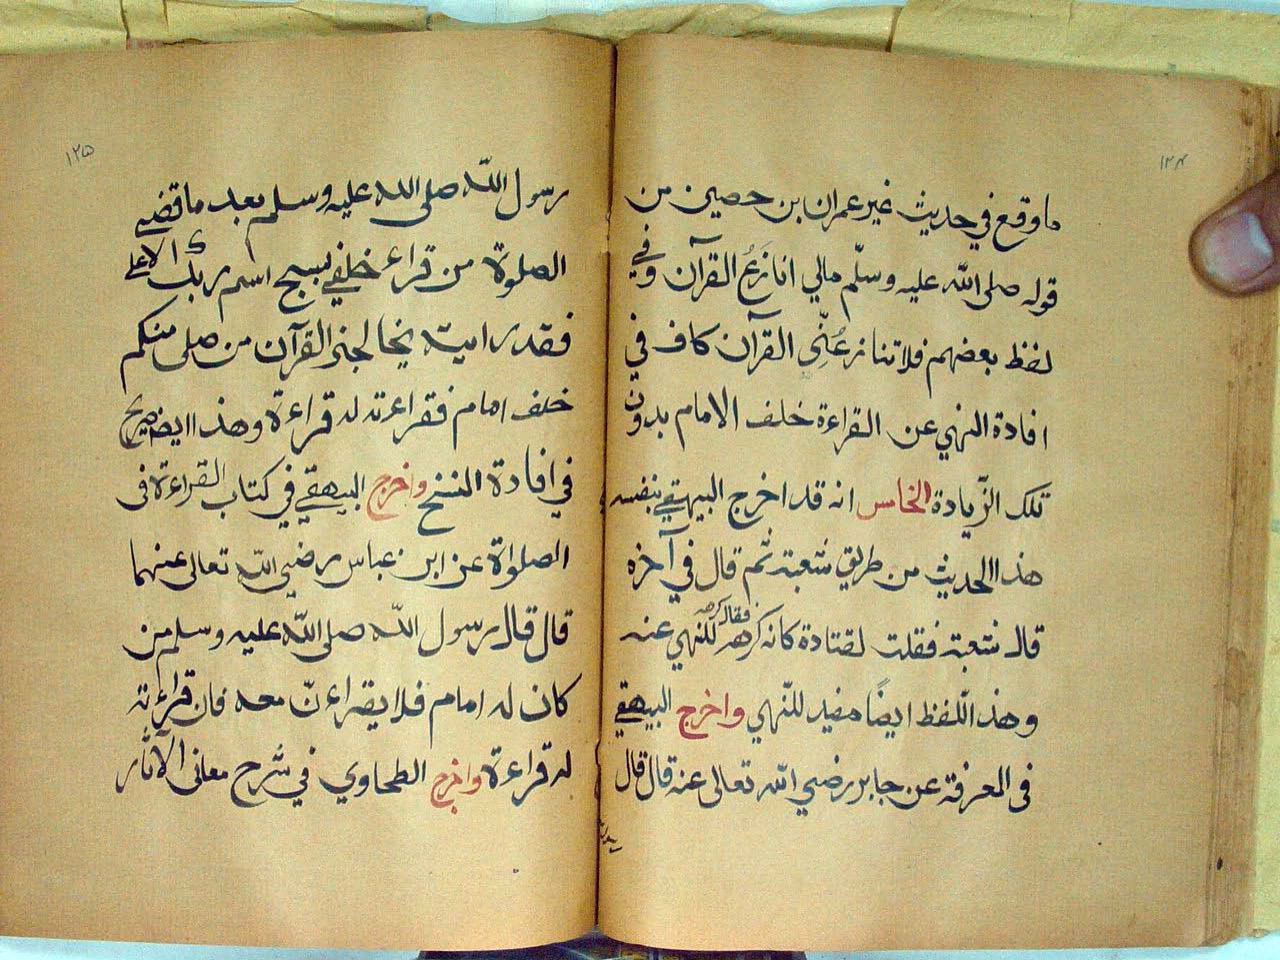 ١٢٤
ما وقع في حديث غير عمران بن حصين من
قوله صلى الله عليه وسلّم مالي انازَعُ القرآن وفي
لفظ بعضهم فلا تنازعُنِّى القرآن كاف في
افادة النهي عن القراءة خلف الامام بدون
تلك الزّيادة الخامس انه قد اخرج البيهقي بنفسه
هذا الحديث من طريق شعبة ثم قال في آخره
قال شعبة فقلت لقتادة كانه كرهه فقال كرهه للنهي عنه
وهذا اللّفظ ايضاً مفيد للنّهي واخرج البيهقي
فى المعرفة عن جابر رضي الله تعالى عنه قال قال
١٢٥
رسول الله صلى الله عليه وسلم بعد ما قضى
الصلوة من قراء خلفي بسبح اسم ربك الاعلى
فقد رايته يخالجنى القرآن من صلى منكم
خلف امام فقراءته له قراءة وهذا ايضا صريح
في افادة النسخ واخرج البيهقي في كتاب القراءة فى
الصلوة عن ابن عباس رضي الله تعالى عنهما
قال قال رسول الله صلى الله عليه وسلم من
كان له امام فلا يقراءنّ معه فان قراءته
له قراءة واخرج الطحاوي في شرح معانى الآثار